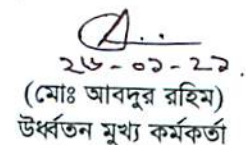 ২৬-০১-২১.
(মোঃ আবদুর রহিম)
উর্ধ্বতন মুখ্য কর্মকর্তা